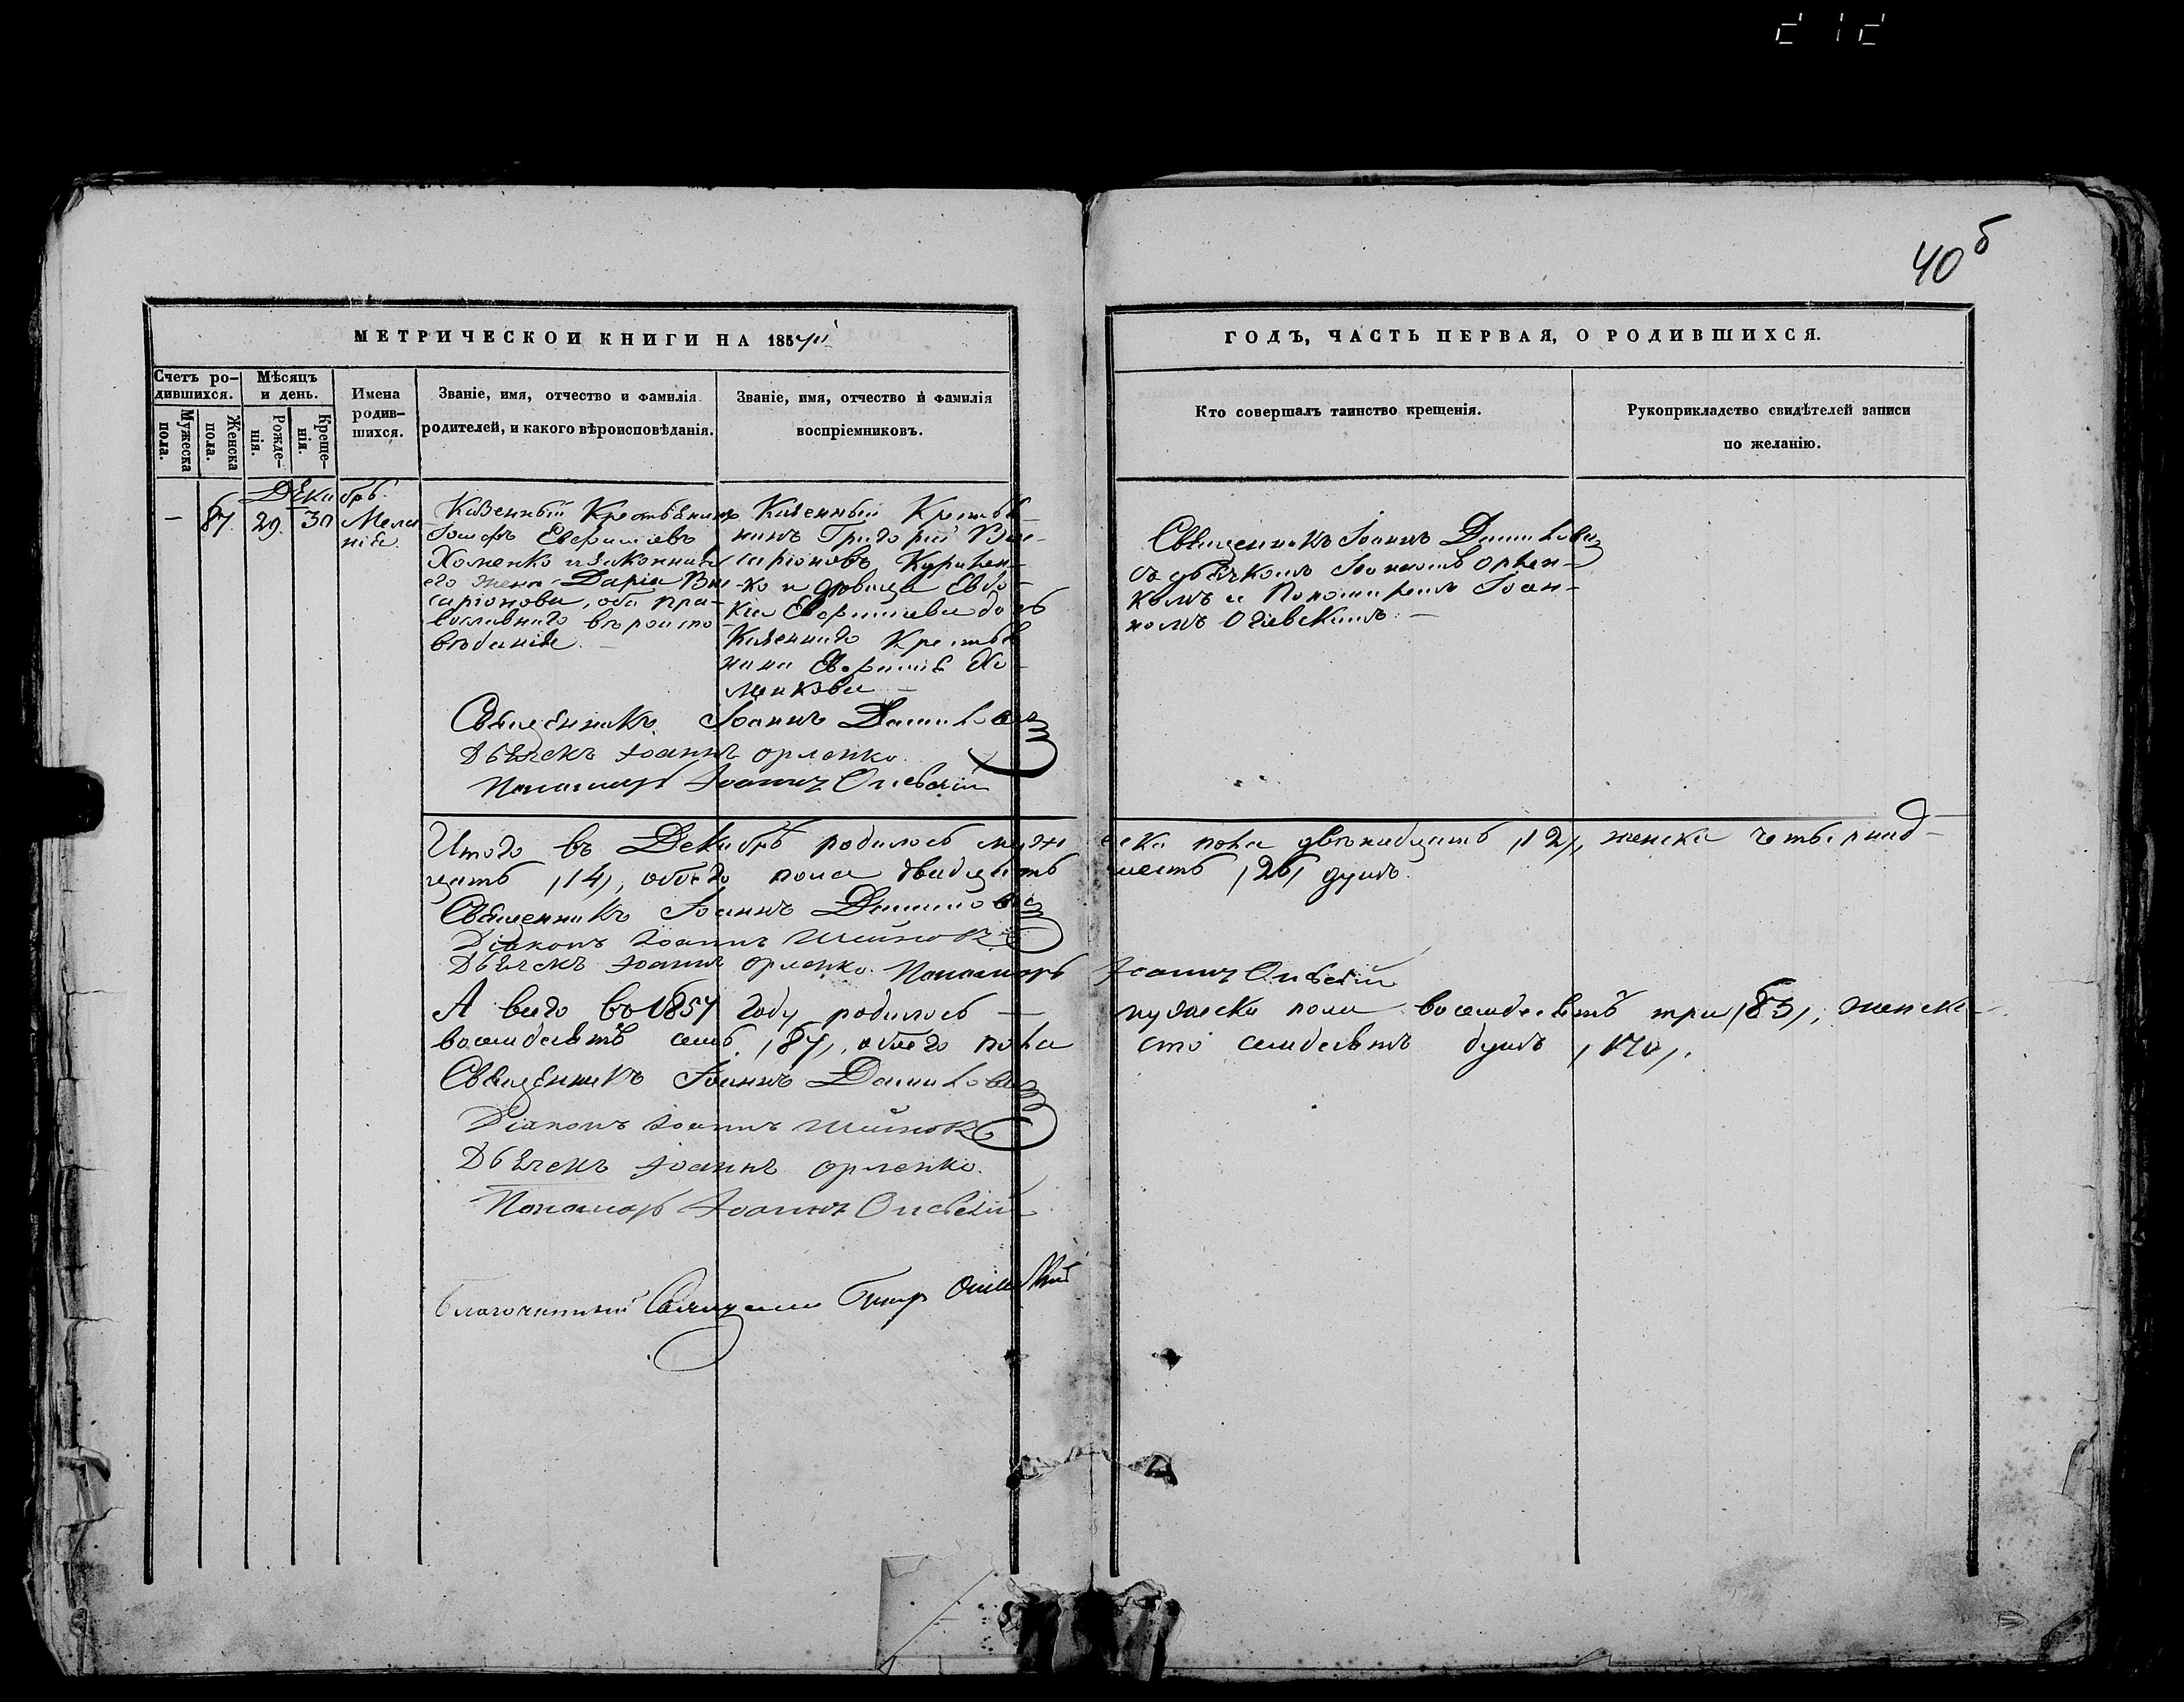 40 б
МЕТРИЧЕСКОЙ КНИГИ НА 1857й
ГОДЪ, ЧАСТЬ ПЕРВАЯ, О РОДИВШИХСЯ.
Счетъ ро-
дившихся.
Мужеска
пола.
Женска
пола.
Мѣсяцъ
и день.
Рожде-
нія.
Креще-
нія.
Имена
родив-
шихся.
Званіе, имя, отчество и фамилія
родителей, и какого вѣроисповѣданія.
Званіе, имя, отчество и фамилія
воспріемниковъ.
Кто совершалъ таинство крещенія.
Рукоприкладство свидѣтелей записи
по желанію.
Декабрь.
— 87. 29. 30 Мела-
нія.
Казенный Крестьянинъ
Іосифъ Евфиміевъ
Хоменко и законная
его жена Дарія Вис-
саріонова, оба пра-
вославнаго вѣроиспо-
вѣданія. —
Казенный Крестья-
нинъ Григорій Вис-
саріоновъ
-ко и дѣвица Евдо-
кія Евфиміева дочь
Казеннаго Крестья-
нина Евфимія Хо-
менкова —
Священникъ Іоаннъ Даниловичъ
съ дьячкомъ Іоанномъ Орлен-
комъ и Пономаремъ Іоан-
номъ —
Священникъ Іоаннъ Даниловичъ
Дьячекъ Іоаннъ Орленко.
Пономарь Іоаннъ
Итого въ Декабрѣ родилось муже-
ска пола двѣнадцать /12/, женска четырнад-
цать /14/, обоего пола двадцать
шесть /26/ душъ.
Священникъ Іоаннъ Даниловичъ
Діаконъ Іоаннъ
Дьячекъ Іоаннъ Орленко. Пономарь Іоаннъ
А всего въ 1857 году родилось —
мужеска пола восемьдесятъ три /83/, женска —
восемьдесятъ семь /87/, обоего пола
сто семьдесятъ душъ /170/.
Священникъ Іоаннъ Даниловичъ
Діаконъ Іоаннъ
Дьячекъ Іоаннъ Орленко.
Пономарь Іоаннъ
Благочинный Священникъ